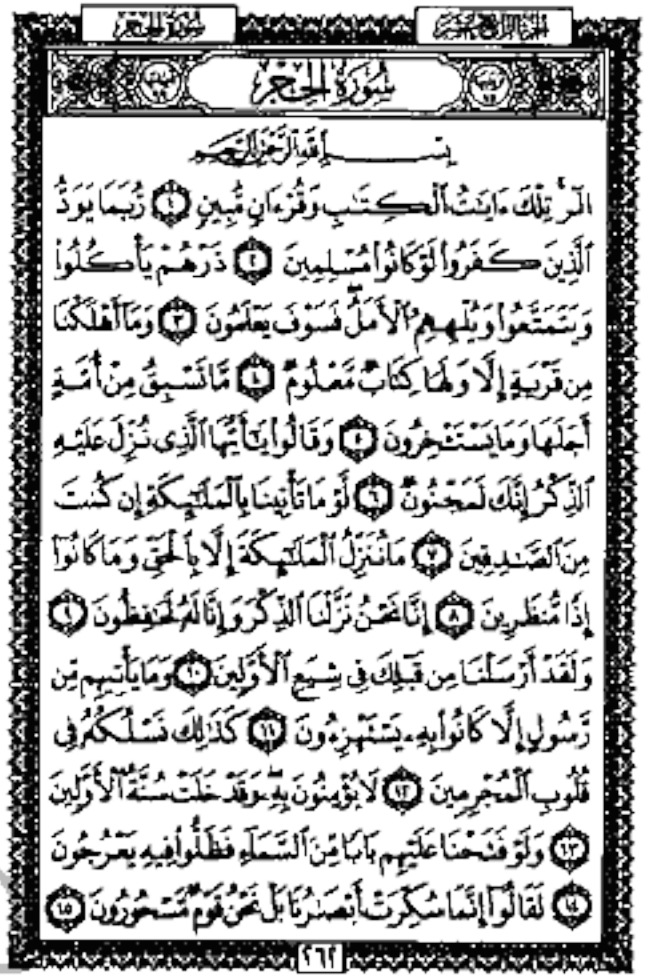 سُورَةُ الحِجْر
الجزء الرابع عشر
سُورَةُ الحِجْرِ
بِسْمِ اللَّهِ الرَّحْمَٰنِ الرَّحِيمِ
الٓر ۚ تِلْكَ ءَايَٰتُ ٱلْكِتَٰبِ وَقُرْءَانٍ مُّبِينٍ ١ رُّبَمَا يَوَدُّ
ٱلَّذِينَ كَفَرُوا۟ لَوْ كَانُوا۟ مُسْلِمِينَ ٢ ذَرْهُمْ يَأْكُلُوا۟
وَيَتَمَتَّعُوا۟ وَيُلْهِهِمُ ٱلْأَمَلُ ۖ فَسَوْفَ يَعْلَمُونَ ٣ وَمَآ أَهْلَكْنَا
مِن قَرْيَةٍ إِلَّا وَلَهَا كِتَابٌ مَّعْلُومٌ ٤ مَّا تَسْبِقُ مِنْ أُمَّةٍ
أَجَلَهَا وَمَا يَسْتَـْٔخِرُونَ ٥ وَقَالُوا۟ يَٰٓأَيُّهَا ٱلَّذِى نُزِّلَ عَلَيْهِ
ٱلذِّكْرُ إِنَّكَ لَمَجْنُونٌ ٦ لَّوْ مَا تَأْتِينَا بِٱلْمَلَٰٓئِكَةِ إِن كُنتَ
مِنَ ٱلصَّٰدِقِينَ ٧ مَا نُنَزِّلُ ٱلْمَلَٰٓئِكَةَ إِلَّا بِٱلْحَقِّ وَمَا كَانُوٓا۟
إِذًا مُّنظَرِينَ ٨ إِنَّا نَحْنُ نَزَّلْنَا ٱلذِّكْرَ وَإِنَّا لَهُۥ لَحَٰفِظُونَ ٩
وَلَقَدْ أَرْسَلْنَا مِن قَبْلِكَ فِى شِيَعِ ٱلْأَوَّلِينَ ١٠ وَمَا يَأْتِيهِم مِّن
رَّسُولٍ إِلَّا كَانُوا۟ بِهِۦ يَسْتَهْزِءُونَ ١١ كَذَٰلِكَ نَسْلُكُهُۥ فِى
قُلُوبِ ٱلْمُجْرِمِينَ ١٢ لَا يُؤْمِنُونَ بِهِۦ ۖ وَقَدْ خَلَتْ سُنَّةُ ٱلْأَوَّلِينَ
١٣ وَلَوْ فَتَحْنَا عَلَيْهِم بَابًا مِّنَ ٱلسَّمَآءِ فَظَلُّوا۟ فِيهِ يَعْرُجُونَ
١٤ لَقَالُوٓا۟ إِنَّمَا سُكِّرَتْ أَبْصَٰرُنَا بَلْ نَحْنُ قَوْمٌ مَّسْحُورُونَ ١٥
٢٦٢